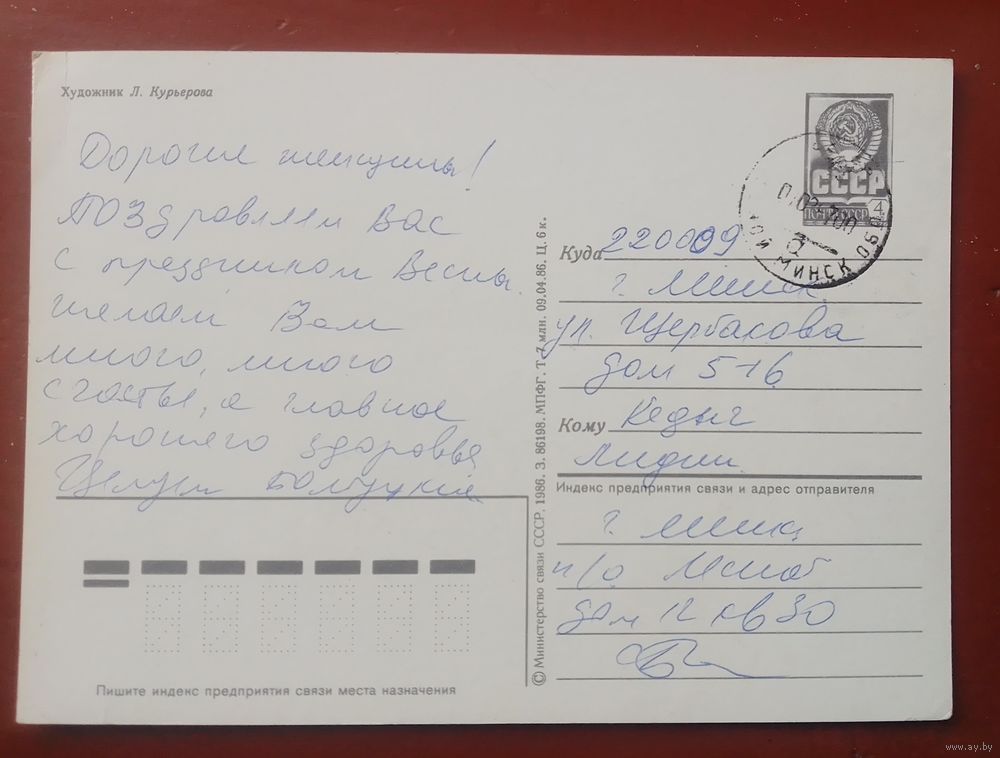 Художник Л. Курьерова
Дорогие женщины!
Поздравляем Вас
с праздником Весны.
желаем Вам
много, много
счастья, а главное
хорошего здоровья
Целуем Болуцкие
СССР
ПОЧТА СССР
4
МИНСК ОБЛ
Куда 220009
г. Минск
ул. Щербакова
дом 5-16
Кому Кедыг
Лидии
Индекс предприятия связи и адрес отправителя
г. Минск
п/о
дом 12 кв 30
© Министерство связи СССР, 1986. З. 86198. МПФГ. Т. 7 млн. 09.04.86. Ц. 6 к.
Пишите индекс предприятия связи места назначения
www.ay.by